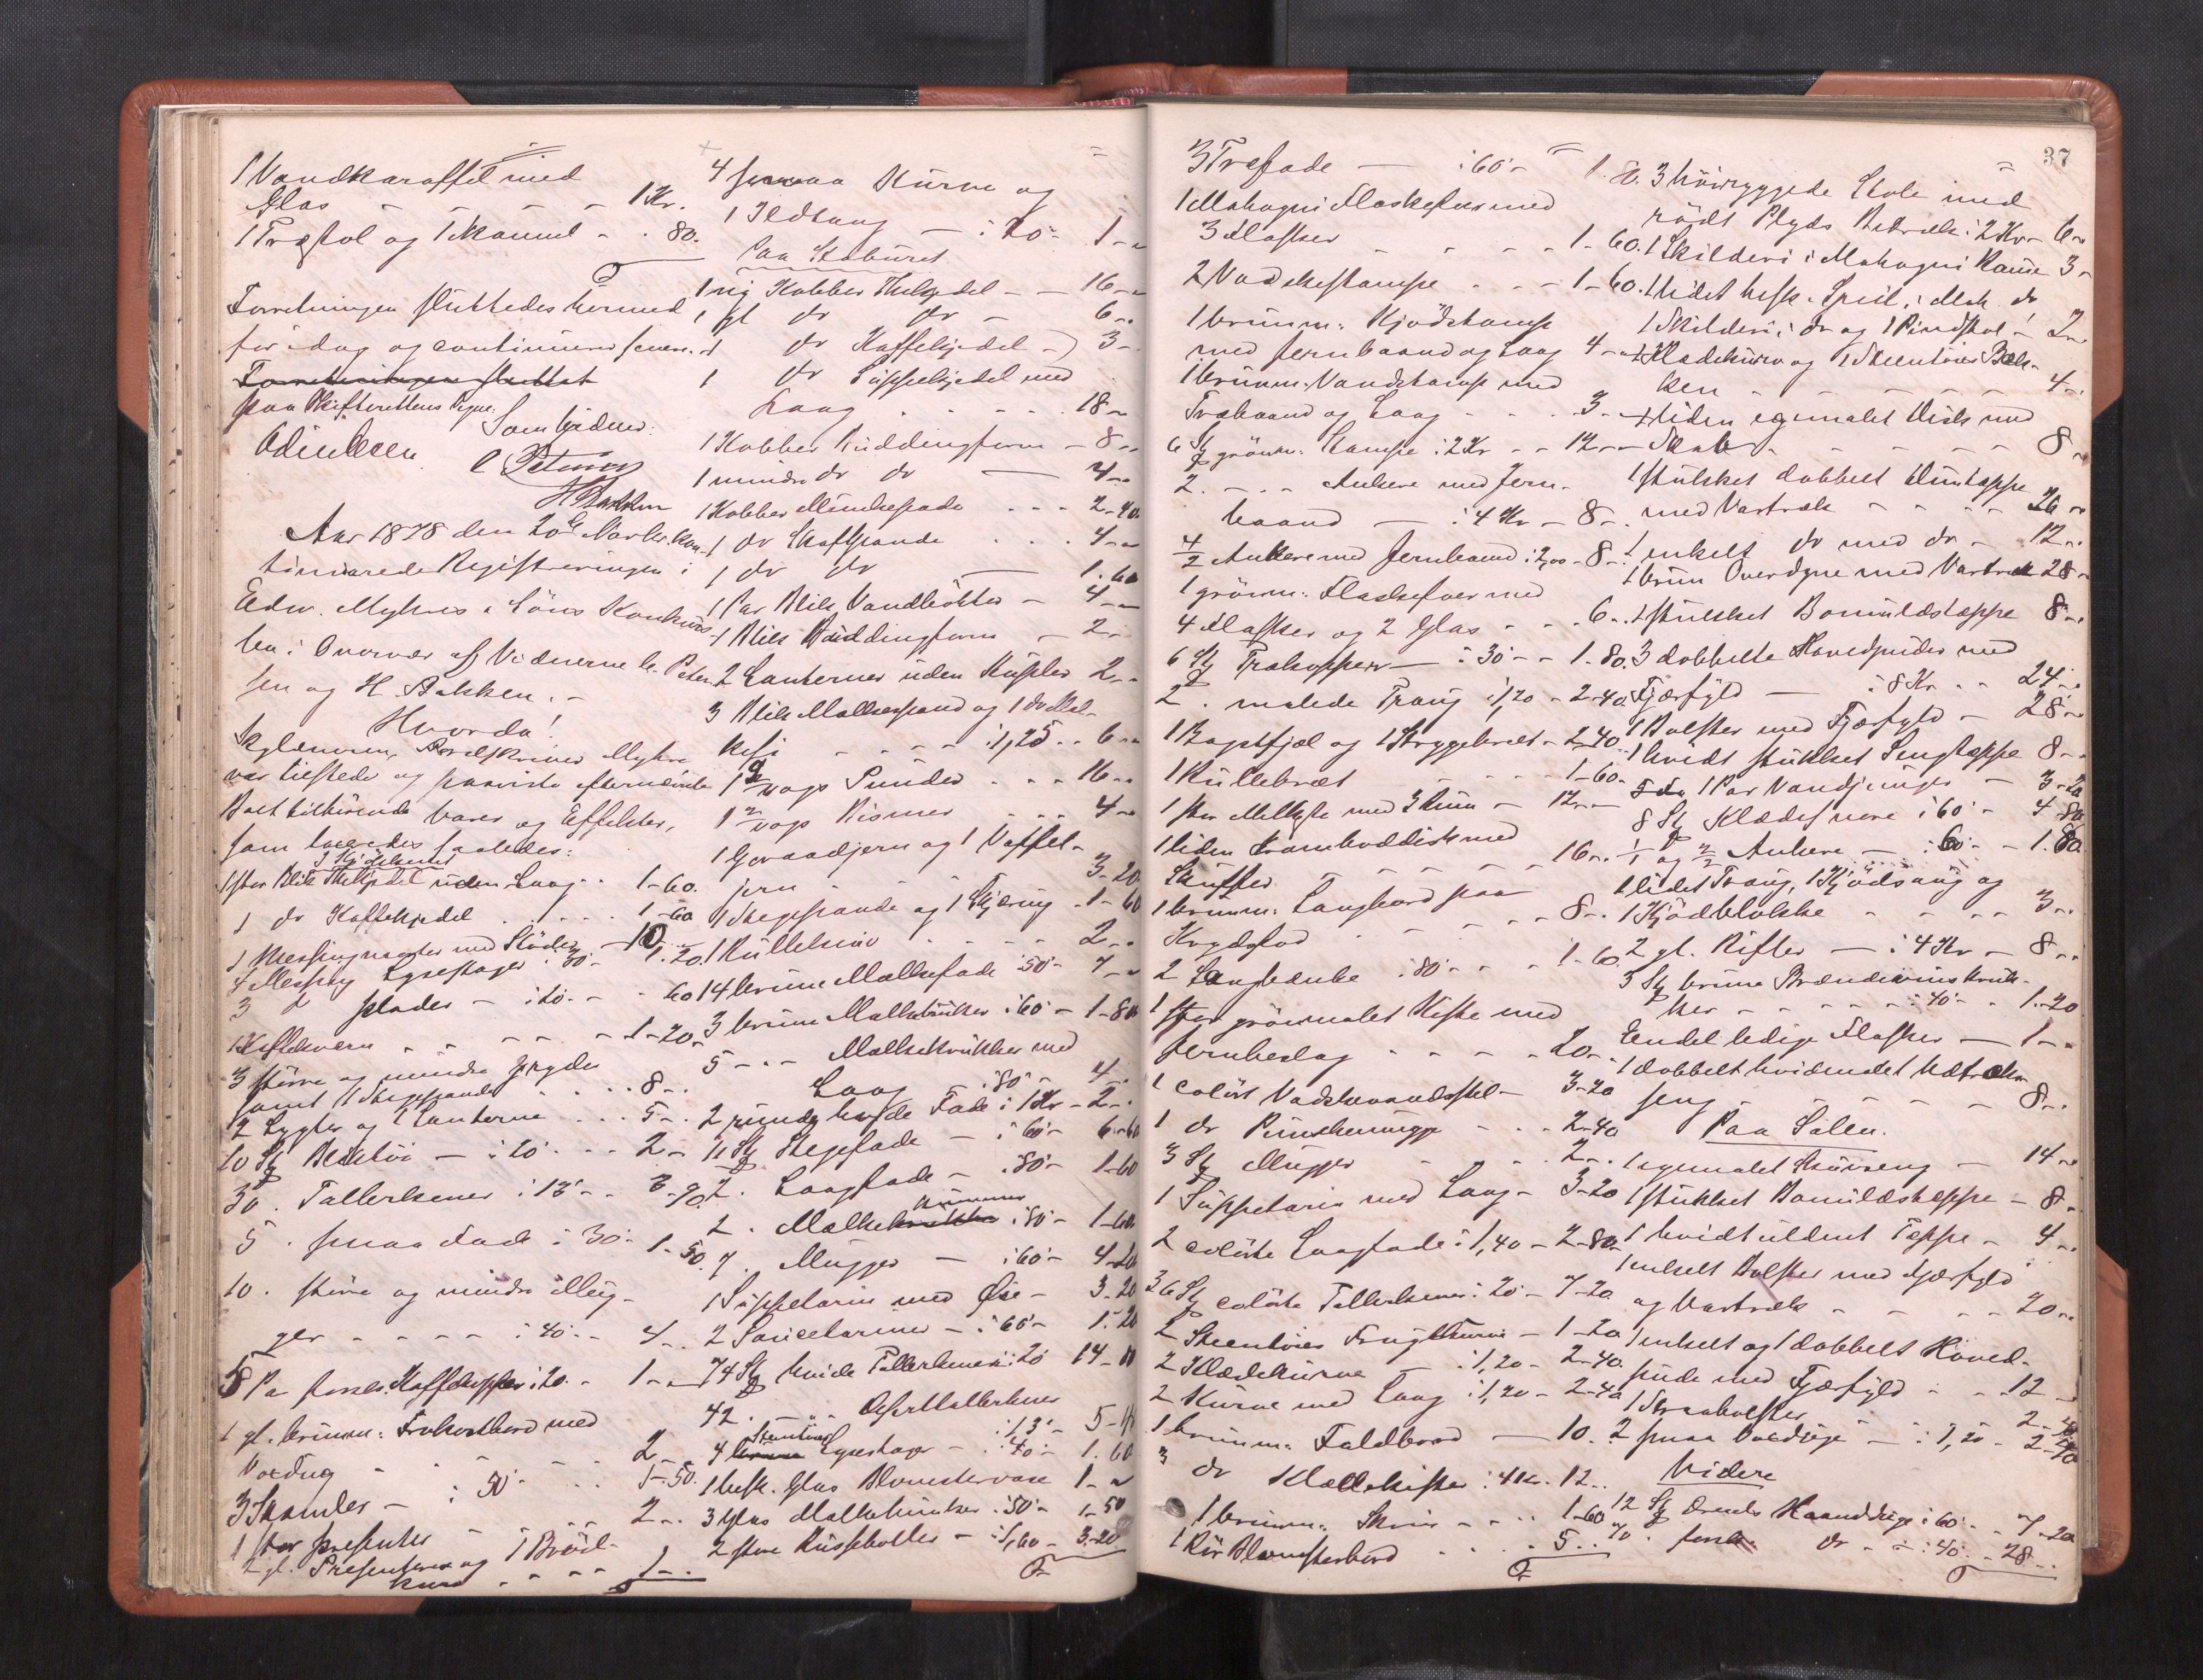 1 Vandkaraffel med
Glas - - - - 1 Kr.
1 Træstol og 1 Skammel - . 80.
Forretningen sluttedes hermed
for idag og continueres senere.
Forretningen sluttet
paa Skifterettens Vegne:
Som Vidner:
C Petersen
H Bakken
Aar 1878 den 20de Novbr. kon-
tinuerede Registreringen i
Edw. Myhres & Søns Konkurs-
bo i Overvær af Vidnerne C. Peter-
sen og H. Bakken. -
Hvorda!
Skyldneren, Myhre
var tilstede og paaviste efternævnte
Boet tilhørende Varer og Effekter,
som toges saaledes:
1 stor Blik Thekjedel uden Laag - . 1-60.
1 do Kaffekjedel . . . . . 1-60
1 Messingmorter med Støder - 10
4 Messing Lysestager : 30 - 1.20.
3 do plader - : 20. - - 60
1 Kaffekværn - - - - - 1-20
3 større og mindre Gryder
samt 1 Stegepande . . . 8-.
2 Lygter og 1 Lanterne . . . 5-.
10 St Bliktøi - : 20 - . . 2-
30 . Tallerkener : 13 - . 3-90
5 . smaa Fade : 30 - 1.50.
10 . større og mindre Mug-
ger - - - - : 40 - . 4-.
5 Pa forskj. Kaffekopper : 20. - 1-
1 gl. brunm: Frokostbord med
Voxdug - - - - - 2-
3 Skamler - : 50 - . . 1-50.
1 stor presenter - - - . . 2-.
2 gl. Presentere og 1 Brød-
kurv - - - - 1-.
4 smaa Kurve og
1 Ildtang - : 20 - 1-
Paa Stabúret
1 ny Kobber Thekjedel - - 16-
1 gl do do - 6-.
1 do Kaffekjedel - 3-
1 do Suppekjedel med
Laag . . . . . 18-
1 Kobber Buddingform - 8-
1 mindre do do - 4-.
1 Kobber Munkepande . . . 2-40
1 do Skaftpande . . . 4-
1 do do - 1.60
1 Par Blik Vandbøtter - 4-
1 Blik Buddingform - 2-
2 Lanterner uden Kupler 2-.
3 Blik Melkespand og 1 do Mel-
kesi - - - - : 1,25 - . 6-
vogs Bismer . . . 4-
1 Goraadjern og 1 Vaffel-
jern - - - - 3-20
1 Stegepande og 1 - 1-60
- - - - 2-.
14 brune Melkefade : 50 - 7-
3 brune Melkekrukker : 60 - 1-80
5 - . - Melkekrukker med
Laag : 80 - 4-.
2 runde hvide Fade : 1 Kr - 2-.
11 St Stegefade - : 60 - 6-60
2 . Laagfade - : 80 - 1-60
2 . Melke : 80 - 1-60
7 . Mugger - : 60 - 4-20
1 Suppeterin med Øse - 3-20
2 Saucetarrine - : 60 - 1.20
74 St hvide Tallerkener : 20 14-80
42 . - . - Deserttallerkener
: 13 - 5-46
4 Steentøies Lysestager - : 40 - 1.60
1 besk. Glas Blomstervase 1-
3 Glas Melkekrukker : 50 - 1-50
2 store Kusseboller - : 1,60 - 3-20
37
3 Træfade - : 60 - 1.80.
1 Mahogni Flaskefoer med
3 Flasker - - - - 1-60.
2 Vadskestampe . . . - 1-60.
1 brunm: Kjødstampe
med Jernbaand og Laag 4-
1 brunm: Vandstampe med
Træbaand og Laag - - . 3-
6 St grønm: Stampe : 2 Kr - - 12-
2 . - . - Ankere med Jern-
baand - : 4 Kr - 8-.
4/2 Ankere med Jernbaand : 2,00 - 8-.
1 grønm: Flaskefoer med
4 Flasker og 2 Glas - - . 6-.
6 St Trækopper - : 30 - - 1.80.
2 . malede Traug : 1,20 - 2-40.
1 Bagstfjæl og 1 Strygebræt - 2-40.
1 Rullebræt - - - - 1-60.
1 stor Melkiste med 3 Rum - 12-
1 liden Kramboddisk med
Skuffer - - - - - 16-.
1 brunm: Langbord paa
Krydsfod - - - - - 8-.
2 Langbænke : 80 - - - 1-60.
1 stor grønmalet Kiste med
Jernbeslag - - - - - 20-.
1 colørt Vadskevandsstel - 3-20
1 do Punschemugge - . - 2-40
3 St Mugger . . . . 2-.
1 Suppetarin med Laag - 3-20
2 colørte Laagfade : 1,40 - 2-80.
36 St colørte Tallerkener : 20 - 7-20.
2 Steentøies Frugtkurve - 1-20
2 Klædekurve - : 1,20 - 2-40.
2 Kurve med Laag : 1,20 - 2-40
1 brunm: Foldebord - 10.
3 do Klædekister : 4 Kr. 12-.
1 brunm: Skrin - - . . 1-60
1 Rør Blomsterbord . . . . 5.
3 høiryggede Stole med
rødt Plyds Betræk : 2 Kr - 6-
1 Skilderi i Mahogni Ramme 3-
1 lidet besk. Speil i Mah. do
1 Skilderi i do og 1 Pindstol - 2-
1 Klædekurv og 1 Steentøies Bæk-
ken - - - - - 4-.
1 liden egemalet Disk med
Skab - - - - - - 8-
1 stukket dobbelt Duntæppe
med Vartræk - - - - 26-
1 enkelt do med do - 12-.
1 brun Overdyne med Vartræk 28-
1 stukket Bomuldstæppe 8-.
3 dobbelte Hovedpuder med
Fjærfyld - : 8 Kr - . 24-.
1 Bolster med Fjærfyld - 28-
1 hvidt stukket Sengtæppe 8-.
1 Par Vandspringer - 3-20
8 St Klædesnore : 60 - 4-80
1/1 og 2/2 Ankere - : 60 - - 1.80.
1 lidet Traug, 1 Kjødsaug og
1 Kjødblokke - - - - 3-.
2 gl. Rifler - : 4 Kr - 8-.
3 St brune Brændevinskruk-
ker - - - - : 40 - . 1-20
Endel ledige Flasker - 1-.
1 dobbelt hvidmalet Udtræks
seng - - - - - - 8-.
Paa Salen.
1 egemalet - 14-
1 stukket Bomuldstæppe - 8-
1 hvidt uldent Teppe - 4-.
1 enkelt Bolster med Fjærfyld
og Vartræk - - - - 20-.
1 enkelt og 1 dobbelt Hoved-
pude med Fjærfyld - - 12-
1 Straabolster 2-40
2 smaa Voxduge - : 1,20 - 2-40
Videre
12 St Drels Haandduge : 60 - - 7-20
70 . forsk. do - - : 40 - 28-.